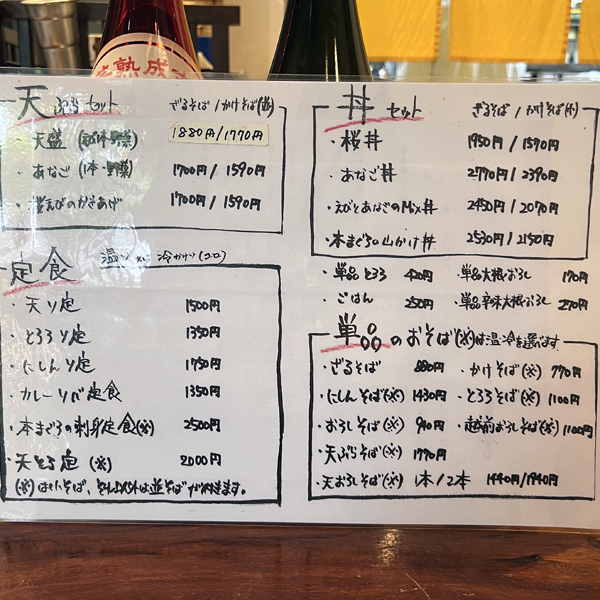 熟成
天ぷらセット ざるそば/かけそば(並)
天盛 1880円/1770円
・あなご (1本・野菜) 1700円/1590円
・桜えびのかきあげ 1700円/1590円
定食 温 冷かけ(コロ)
・天ソ定 1500円
・とろろソ定 1350円
・にしんソ定 1750円
・カレーソバ定食 1350円
・本まぐろの刺身定食(※) 2500円
・天とろ定 (※) 2000円
(※)は そば、それ以外は並そばが付きます。
丼セット ざるそば/かけそば(小)
・桜丼 1950円/1570円
・あなご丼 2770円/2390円
・えびとあなごのMix丼 2450円/2070円
・本まぐろの山かけ丼 2530円/2150円
・単品とろろ 420円 ・単品大根おろし 170円
・ごはん 250円 ・単品辛味大根おろし 270円
単品のおそば (※)は温・冷を選べます
・ざるそば 880円 ・かけそば(※) 770円
・にしんそば(※) 1430円 ・とろろそば(※) 1100円
・おろしそば(※) 940円 ・越前おろしそば(※) 1100円
・天ぷらそば(※) 1770円
・天おろしそば(※) 1本/2本 1440円/1940円